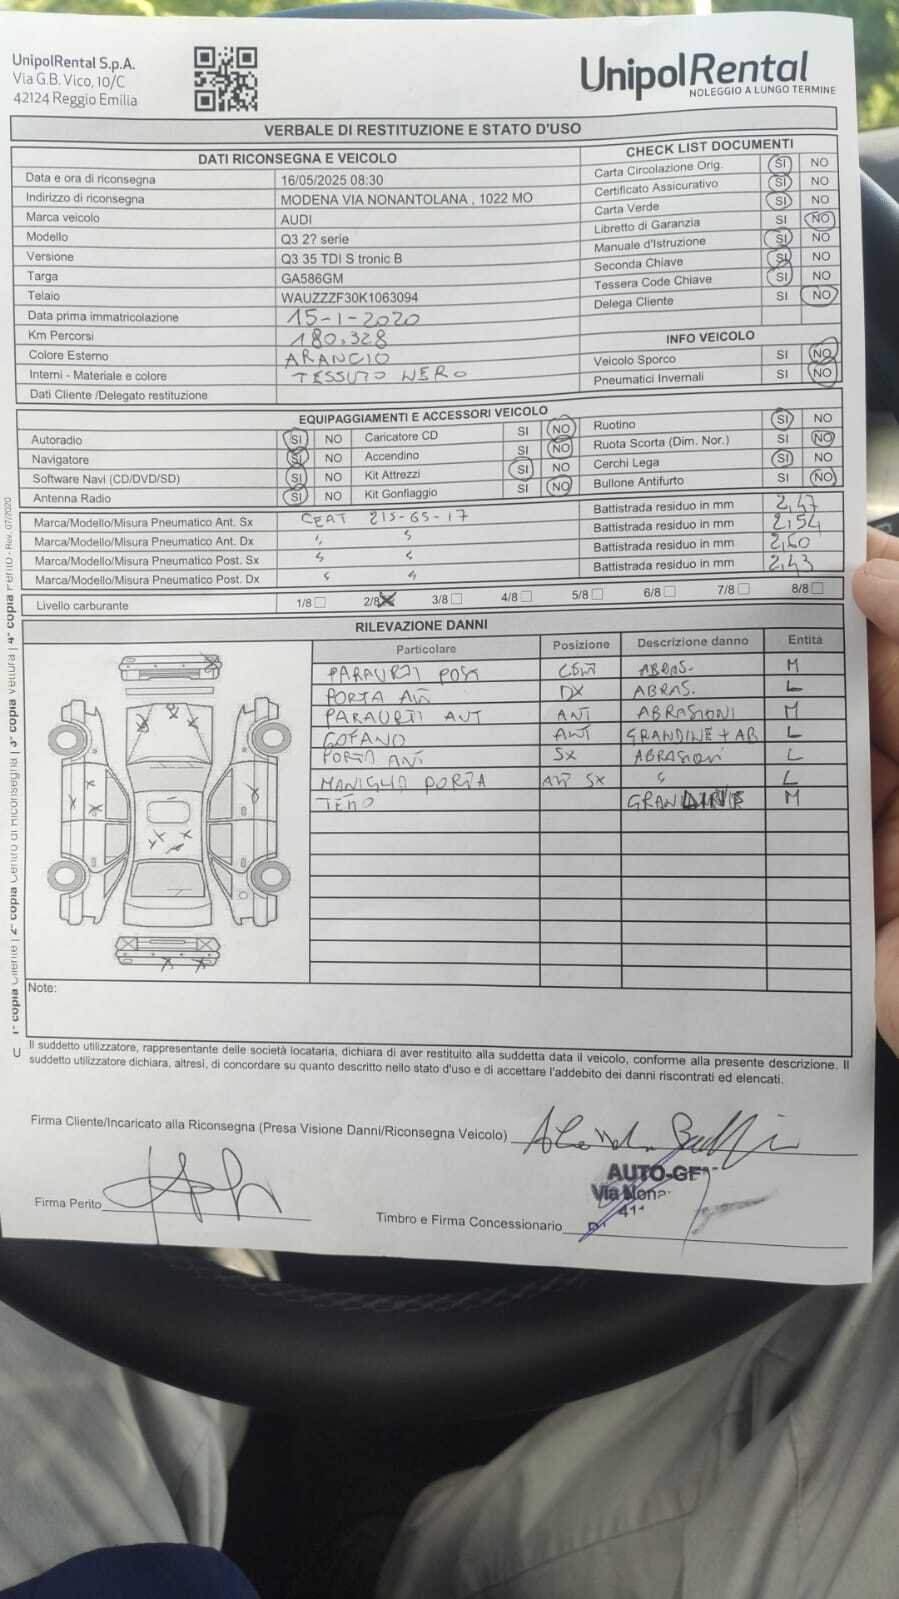 UnipolRental S.p.A.
Via G.B. Vico, 10/C
42124 Reggio Emilia
UnipolRental
NOLEGGIO A LUNGO TERMINE
VERBALE DI RESTITUZIONE E STATO D'USO
DATI RICONSEGNA E VEICOLO
Data e ora di riconsegna 16/05/2025 08:30
Indirizzo di riconsegna MODENA VIA NONANTOLANA , 1022 MO
Marca veicolo AUDI
Modello Q3 2? serie
Versione Q3 35 TDI S tronic B
Targa GA586GM
Telaio WAUZZZF30K1063094
Data prima immatricolazione 15-1-2020
Km Percorsi 180.328
Colore Esterno ARANCIO
Interni - Materiale e colore TESSUTO NERO
Dati Cliente /Delegato restituzione
CHECK LIST DOCUMENTI
Carta Circolazione Orig. SI NO
Certificato Assicurativo SI NO
Carta Verde SI NO
Libretto di Garanzia SI NO
Manuale d'Istruzione SI NO
Seconda Chiave SI NO
Tessera Code Chiave SI NO
Delega Cliente SI NO
INFO VEICOLO
Veicolo Sporco SI NO
Pneumatici Invernali SI NO
EQUIPAGGIAMENTI E ACCESSORI VEICOLO
Autoradio SI NO Caricatore CD SI NO Ruotino SI NO
Navigatore SI NO Accendino SI NO Ruota Scorta (Dim. Nor.) SI NO
Software Navi (CD/DVD/SD) SI NO Kit Attrezzi SI NO Cerchi Lega SI NO
Antenna Radio SI NO Kit Gonfiaggio SI NO Bullone Antifurto SI NO
Marca/Modello/Misura Pneumatico Ant. Sx CEAT 215-65-17 Battistrada residuo in mm 2,47
Marca/Modello/Misura Pneumatico Ant. Dx " " Battistrada residuo in mm 2,54
Marca/Modello/Misura Pneumatico Post. Sx " " Battistrada residuo in mm 2,60
Marca/Modello/Misura Pneumatico Post. Dx " " Battistrada residuo in mm 2,43
Livello carburante 1/8 2/8 3/8 4/8 5/8 6/8 7/8 8/8
RILEVAZIONE DANNI
Particolare Posizione Descrizione danno Entità
PARAURTI POST ABRAS. M
PORTA ANT DX ABRAS. L
PARAURTI ANT ANT ABRASIONI M
COFANO ANT GRANDINE + AB L
PORTA ANT SX ABRASIONI L
MANIGLIA PORTA ANT SX " L
TETTO GRANDINE M
Note:
Il suddetto utilizzatore, rappresentante delle società locataria, dichiara di aver restituito alla suddetta data il veicolo, conforme alla presente descrizione. Il
suddetto utilizzatore dichiara, altresì, di concordare su quanto descritto nello stato d'uso e di accettare l'addebito dei danni riscontrati ed elencati.
Firma Cliente/Incaricato alla Riconsegna (Presa Visione Danni/Riconsegna Veicolo)
AUTO-GE
Via Nona
411
Firma Perito
Timbro e Firma Concessionario
1° copia Cliente | 2° copia Centro di Riconsegna | 3° copia Vettura | 4° copia Perito - Rev. 07/2020